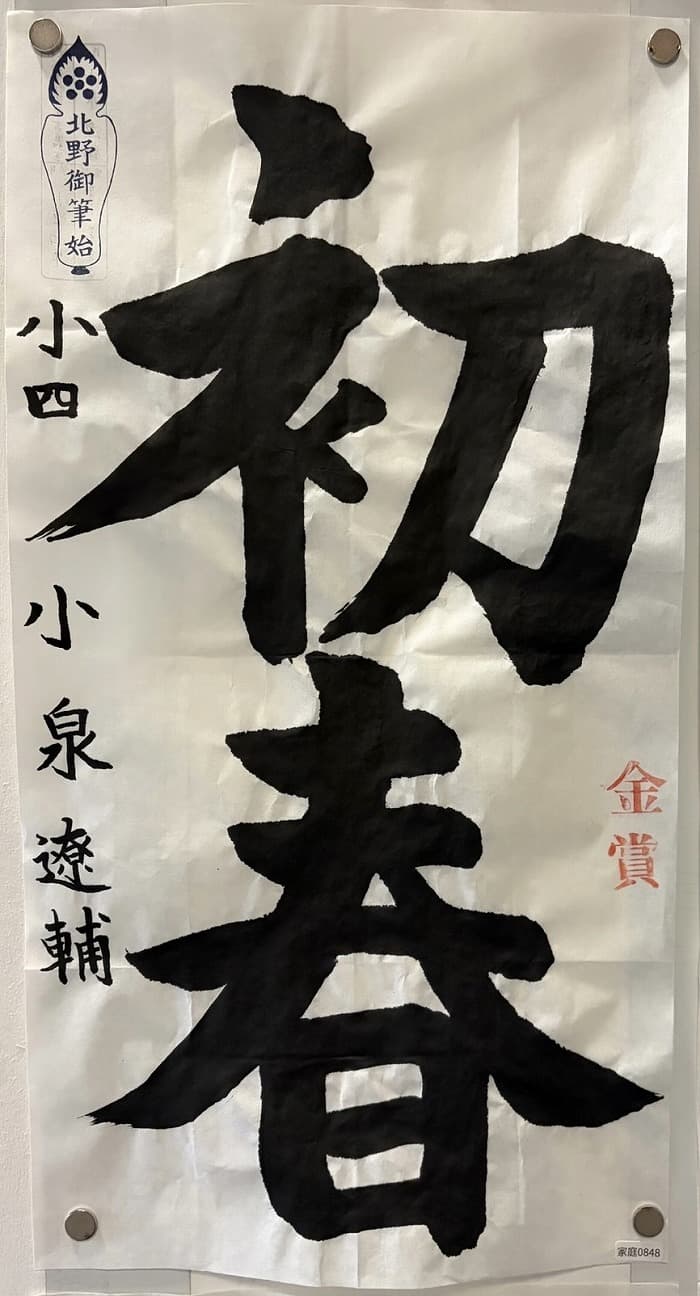 初春
金賞
北野御筆始
小四 小泉遼輔
家庭0848